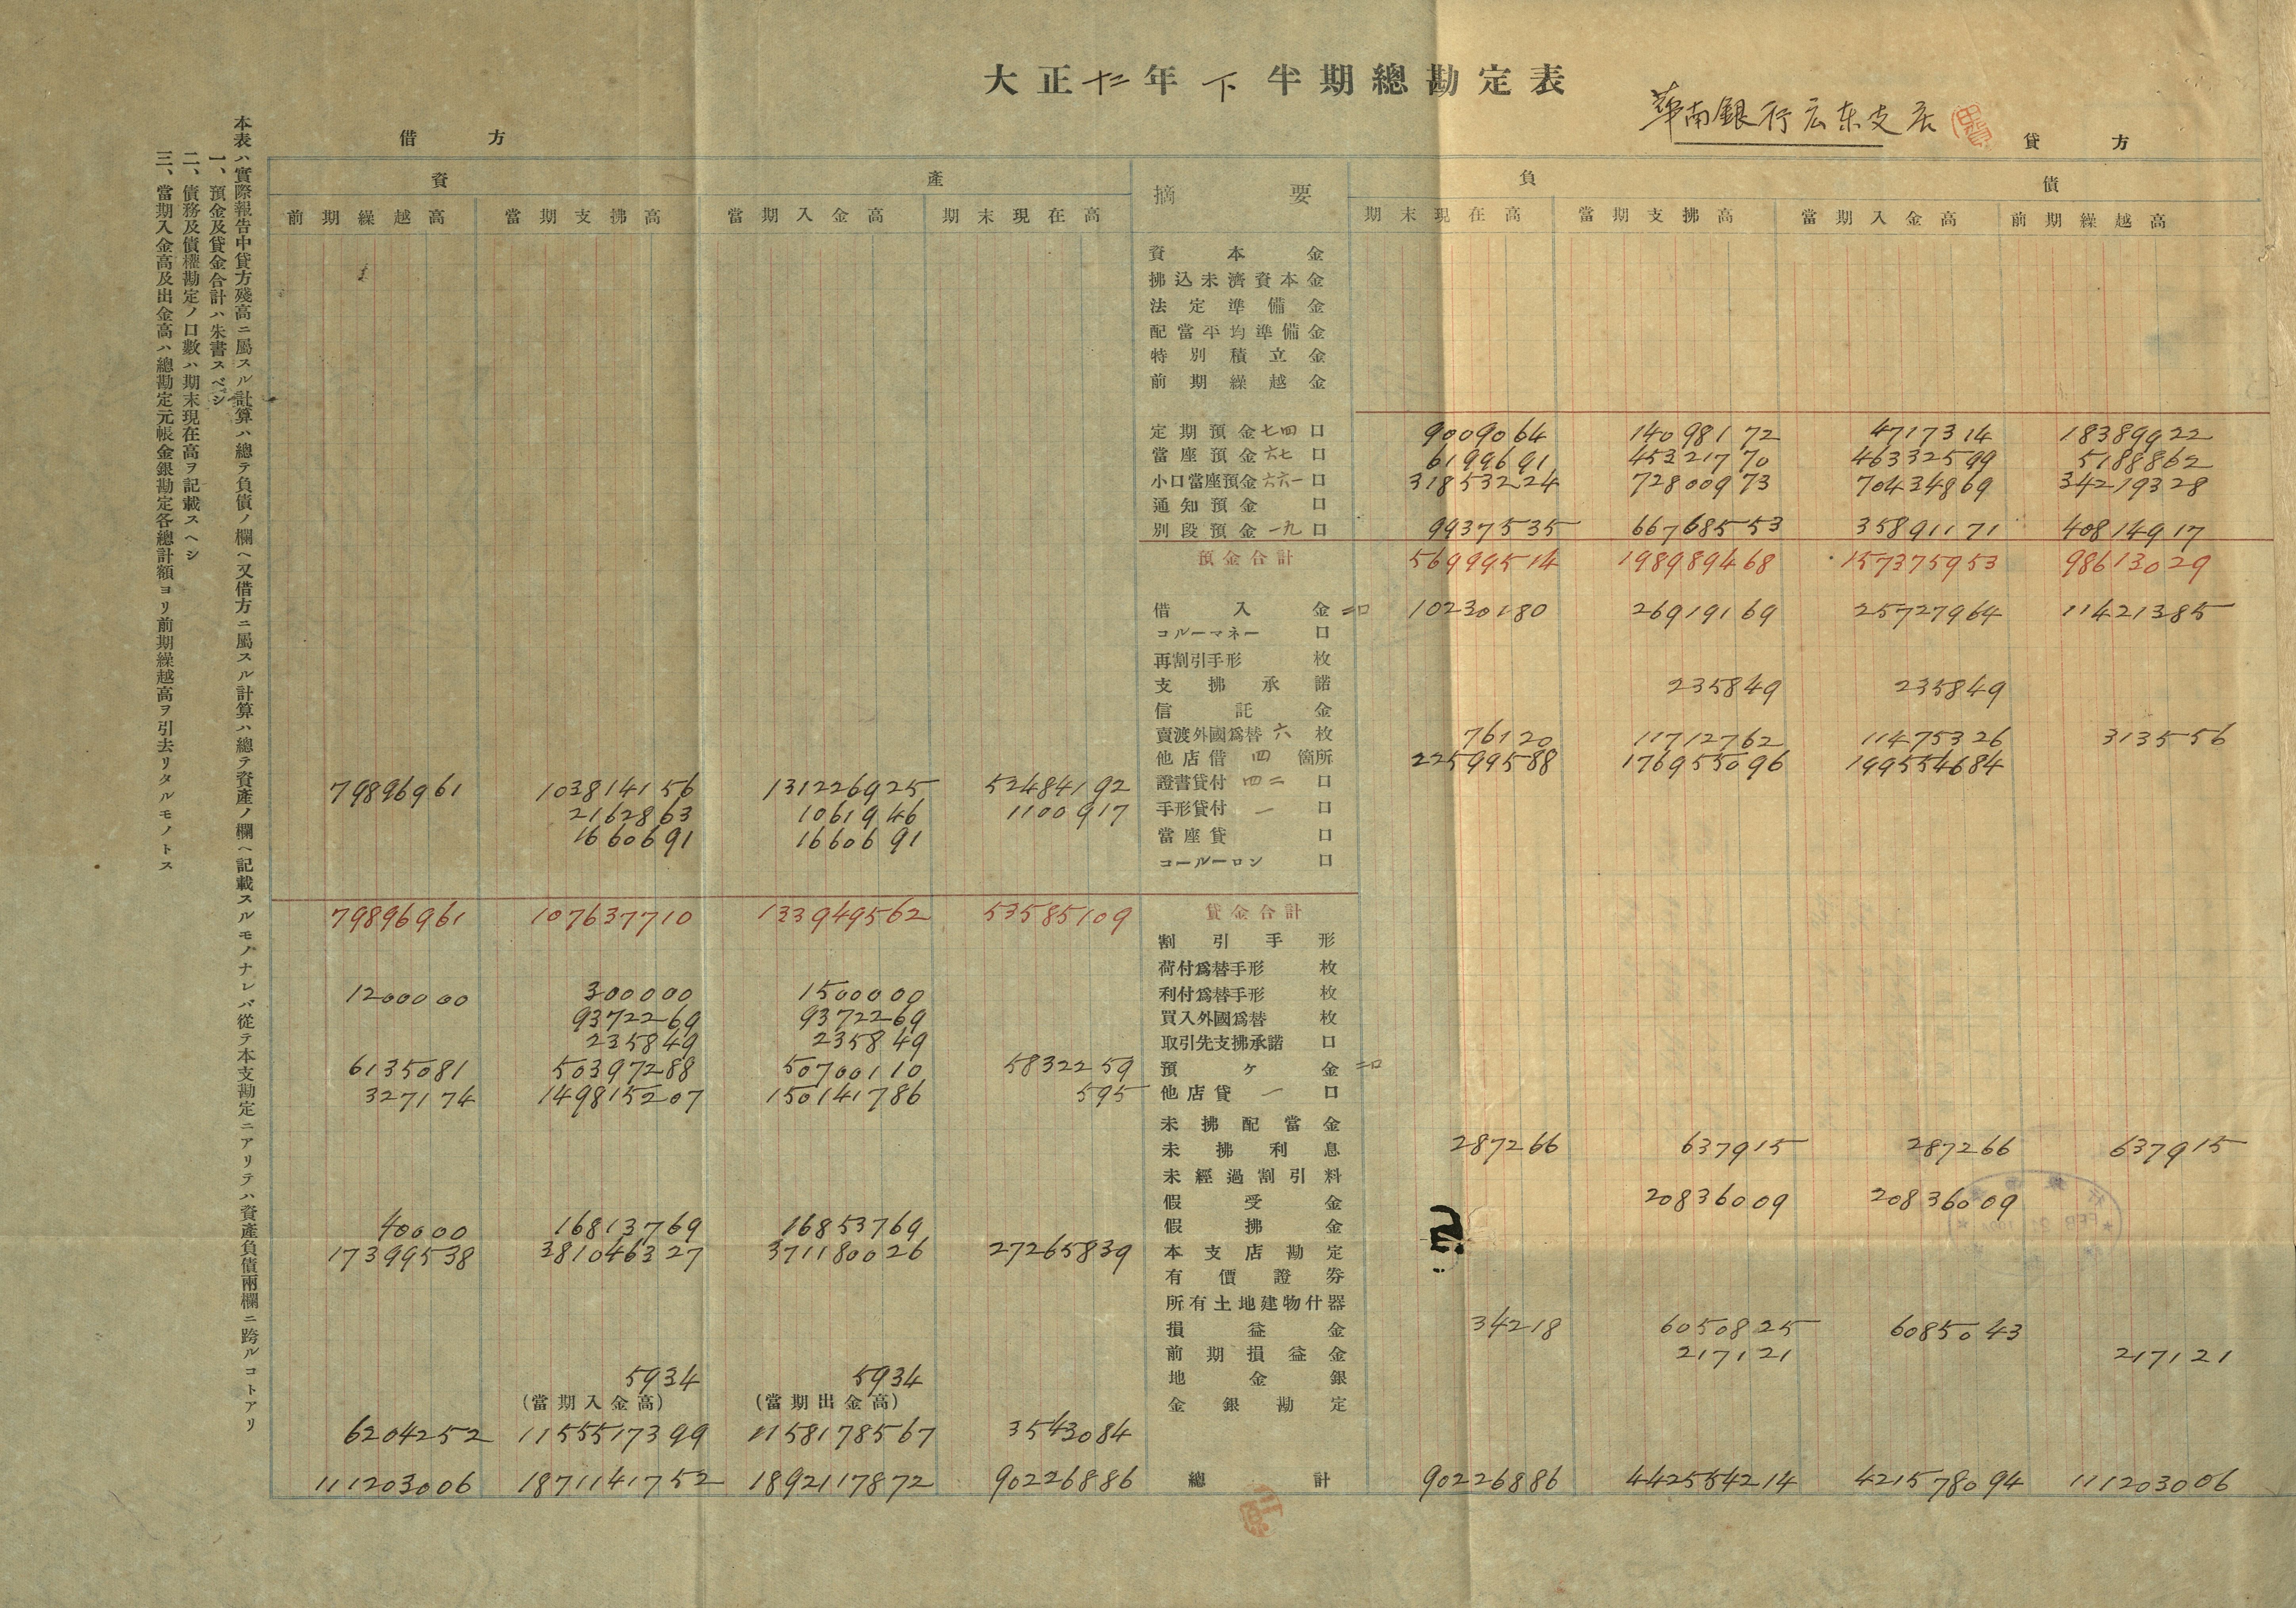 大正十二年下半期總勘定表
華南銀行広东支店
借方
貸方
資產
摘要
負債
前期繰越高 當期支拂高 當期入金高 期末現在高 期末現在高 當期支拂高 當期入金高 前期繰越高
資本金
拂込未濟資本金
法定準備金
配當平均準備金
特別積立金
前期繰越金
定期預金七四口 9009064 14098172 4717314 18389922
當座預金六七口 6199691 45321770 46332599 5188862
小口當座預金六六一口 31853224 72800973 70434869 34219328
通知預金口
別段預金一九口 9937535 66768553 35891171 40814917
預金合計 56999514 198989468 157375953 98613029
借入金二口 10230180 26919169 25727964 11421385
コルーマネー口
再割引手形枚
支拂承諾 235849 235849
信託金
賣渡外國爲替六枚 76120 11712762 11475326 313556
他店借四箇所 22599588 176955096 199554684
79896961 103814156 131226925 52484192 證書貸付四二口
2162863 1061946 1100917 手形貸付一口
1660691 1660691 當座貸口
コールーロン口
79896961 107637710 133949562 53585109 貸金合計
割引手形
荷付爲替手形枚
1200000 300000 1500000 利付爲替手形枚
9372269 9372269 買入外國爲替枚
235849 235849 取引先支拂承諾口
6135081 50397288 50700110 5832259 預ケ金二口
327174 149815207 150141786 595 他店貸一口
未拂配當金
未拂利息 287266 637915 287266 637915
未經過割引料
假受金 20836009 20836009
40000 16813769 16853769 假拂金
17399538 381046327 371180026 27265839 本支店勘定
有價證券
所有土地建物什器
損益金 34218 6050825 6085043
前期損益金 217121 217121
5934 5934 地金銀
(當期入金高) (當期出金高) 金銀勘定
6204252 1155517399 1158178567 3543084
111203006 1871141752 1892117872 90226886 總計 90226886 442554214 421578094 111203006
本表ハ實際報告中貸方殘高ニ屬スル計算ハ總テ負債ノ欄ヘ又借方ニ屬スル計算ハ總テ資產ノ欄ヘ記載スルモノナレバ從テ本支勘定ニアリテハ資產負債兩欄ニ跨ルコトアリ
一、預金及貸金合計ハ朱書スベシ
二、債務及債權勘定ノ口數ハ期末現在高ヲ記載スヘシ
三、當期入金高及出金高ハ總勘定元帳金銀勘定各總計額ヨリ前期繰越高ヲ引去リタルモノトス